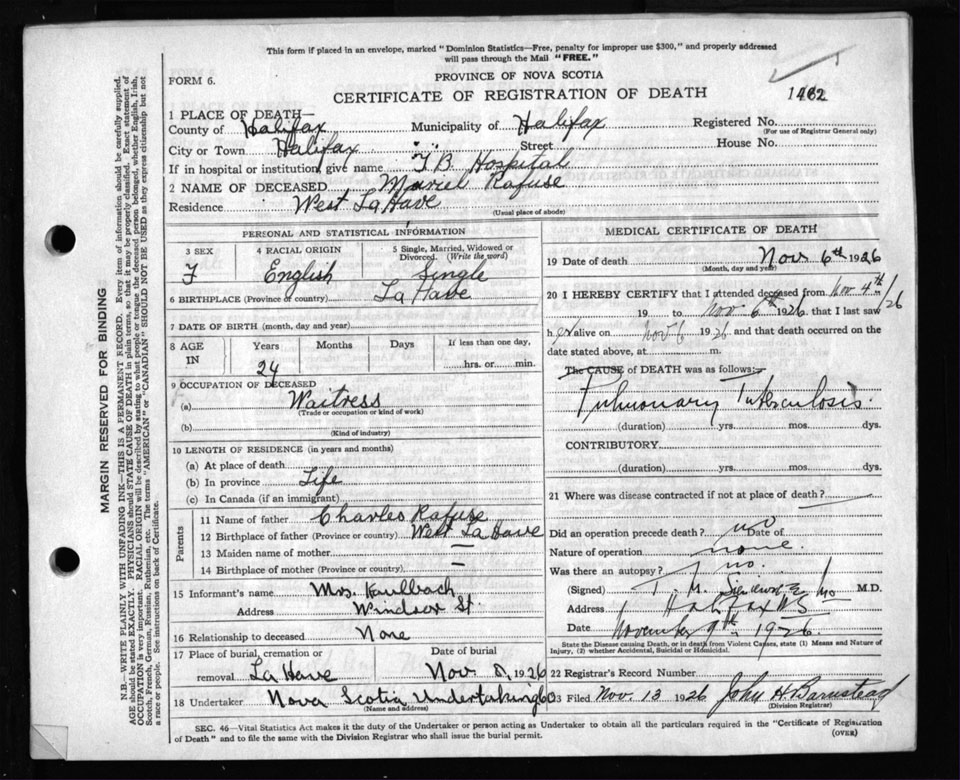 This form if placed in an envelope, marked "Dominion Statistics—Free, penalty for improper use $300," and properly addressed
will pass through the Mail "FREE."
FORM 6.
PROVINCE OF NOVA SCOTIA
CERTIFICATE OF REGISTRATION OF DEATH
1462
1 PLACE OF DEATH—
County of Halifax Municipality of Halifax Registered No.
(For use of Registrar General only)
City or Town Halifax Street House No.
If in hospital or institution, give name T.B. Hospital
2 NAME OF DECEASED Muriel Rafuse
Residence West La Have
(Usual place of abode)
PERSONAL AND STATISTICAL INFORMATION
3 SEX 4 RACIAL ORIGIN 5 Single, Married, Widowed or
Divorced. (Write the word)
F English Single
6 BIRTHPLACE (Province or country) La Have
7 DATE OF BIRTH (month, day and year)
8 AGE IN Years Months Days If less than one day,
24 hrs. or min.
9 OCCUPATION OF DECEASED
(a) Waitress
(Trade or occupation or kind of work)
(b)
(Kind of industry)
10 LENGTH OF RESIDENCE (in years and months)
(a) At place of death
(b) In province Life
(c) In Canada (if an immigrant)
Parents
11 Name of father Charles Rafuse
12 Birthplace of father (Province or country) West La Have
13 Maiden name of mother —
14 Birthplace of mother (Province or country) —
15 Informant's name Mrs. Kaulbach
Address Windsor St.
16 Relationship to deceased None
17 Place of burial, cremation or Date of burial
removal La Have Nov. 8, 1926
18 Undertaker Nova Scotia Undertaking Co
(Name and address)
MEDICAL CERTIFICATE OF DEATH
19 Date of death Nov 6th 1926
(Month, day and year)
20 I HEREBY CERTIFY that I attended deceased from Nov 4th /26
19 to Nov 6th 1926 that I last saw
h er alive on Nov 6 1926 and that death occurred on the
date stated above, at m.
The CAUSE of DEATH was as follows:
Pulmonary Tuberculosis.
(duration) yrs. mos. dys.
CONTRIBUTORY
(duration) yrs. mos. dys.
21 Where was disease contracted if not at place of death? —
Did an operation precede death? no Date of
Nature of operation none.
Was there an autopsy? no.
(Signed) T. M. M.D.
Address Halifax NS
Date November 9th 1926.
State the Disease causing Death, or in death from Violent Causes, state (1) Means and Nature of
Injury, (2) whether Accidental, Suicidal or Homicidal.
22 Registrar's Record Number
23 Filed Nov. 13 1926 John H Barnstead
(Division Registrar)
SEC. 46—Vital Statistics Act makes it the duty of the Undertaker or person acting as Undertaker to obtain all the particulars required in the "Certificate of Registration
of Death" and to file the same with the Division Registrar who shall issue the burial permit.
(OVER)
MARGIN RESERVED FOR BINDING
N.B.—WRITE PLAINLY WITH UNFADING INK—THIS IS A PERMANENT RECORD. Every item of information should be carefully supplied.
AGE should be stated EXACTLY. PHYSICIANS should STATE CAUSE OF DEATH in plain terms, so that it may be properly classified. Exact statement of
OCCUPATION is very important. RACIAL ORIGIN will be described by stating to what people or tongue the deceased person belonged, whether English, Irish,
Scotch, French, German, Russian, Ruthenian, etc. The terms "AMERICAN" or "CANADIAN" SHOULD NOT BE USED as they express citizenship but not
a race or people. See instructions on back of Certificate.